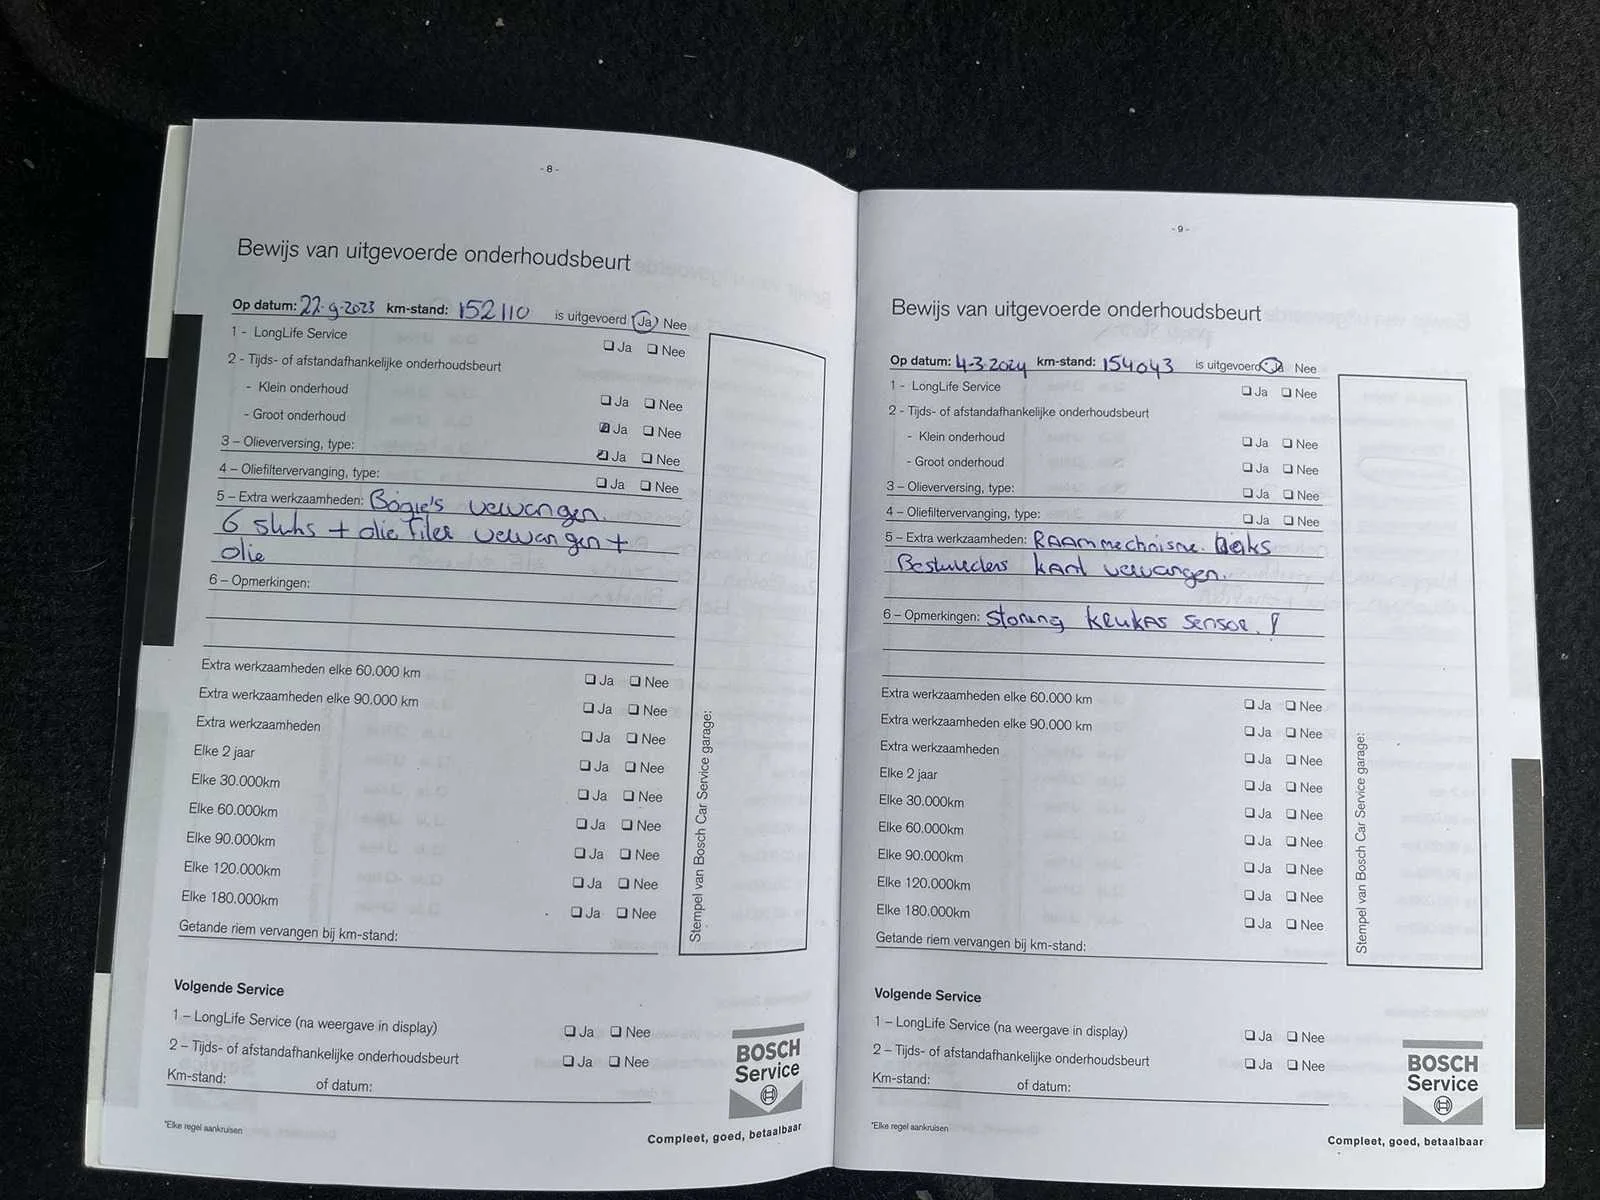 - 8 -
Bewijs van uitgevoerde onderhoudsbeurt
Op datum: 22-9-2023 km-stand: 152110 is uitgevoerd Ja Nee
1 - LongLife Service Ja Nee
2 - Tijds- of afstandafhankelijke onderhoudsbeurt
- Klein onderhoud Ja Nee
- Groot onderhoud Ja Nee
3 – Olieverversing, type: Ja Nee
4 – Oliefiltervervanging, type: Ja Nee
5 – Extra werkzaamheden: Bogie's vervangen.
6 stuks + olie filer vervangen +
olie
6 – Opmerkingen:
Extra werkzaamheden elke 60.000 km Ja Nee
Extra werkzaamheden elke 90.000 km Ja Nee
Extra werkzaamheden Ja Nee
Elke 2 jaar Ja Nee
Elke 30.000km Ja Nee
Elke 60.000km Ja Nee
Elke 90.000km Ja Nee
Elke 120.000km Ja Nee
Elke 180.000km Ja Nee
Getande riem vervangen bij km-stand:
Stempel van Bosch Car Service garage:
Volgende Service
1 – LongLife Service (na weergave in display) Ja Nee
2 – Tijds- of afstandafhankelijke onderhoudsbeurt Ja Nee
Km-stand: of datum:
*Elke regel aankruisen
BOSCH
Service
Compleet, goed, betaalbaar
- 9 -
Bewijs van uitgevoerde onderhoudsbeurt
Op datum: 4-3-2024 km-stand: 154043 is uitgevoerd Ja Nee
1 - LongLife Service Ja Nee
2 - Tijds- of afstandafhankelijke onderhoudsbeurt
- Klein onderhoud Ja Nee
- Groot onderhoud Ja Nee
3 – Olieverversing, type: Ja Nee
4 – Oliefiltervervanging, type: Ja Nee
5 – Extra werkzaamheden: RAAmmechnisme. links
Bestuurders kant vervangen.
6 – Opmerkingen: Storing krukas sensor. !
Extra werkzaamheden elke 60.000 km Ja Nee
Extra werkzaamheden elke 90.000 km Ja Nee
Extra werkzaamheden Ja Nee
Elke 2 jaar Ja Nee
Elke 30.000km Ja Nee
Elke 60.000km Ja Nee
Elke 90.000km Ja Nee
Elke 120.000km Ja Nee
Elke 180.000km Ja Nee
Getande riem vervangen bij km-stand:
Stempel van Bosch Car Service garage:
Volgende Service
1 – LongLife Service (na weergave in display) Ja Nee
2 – Tijds- of afstandafhankelijke onderhoudsbeurt Ja Nee
Km-stand: of datum:
*Elke regel aankruisen
BOSCH
Service
Compleet, goed, betaalbaar